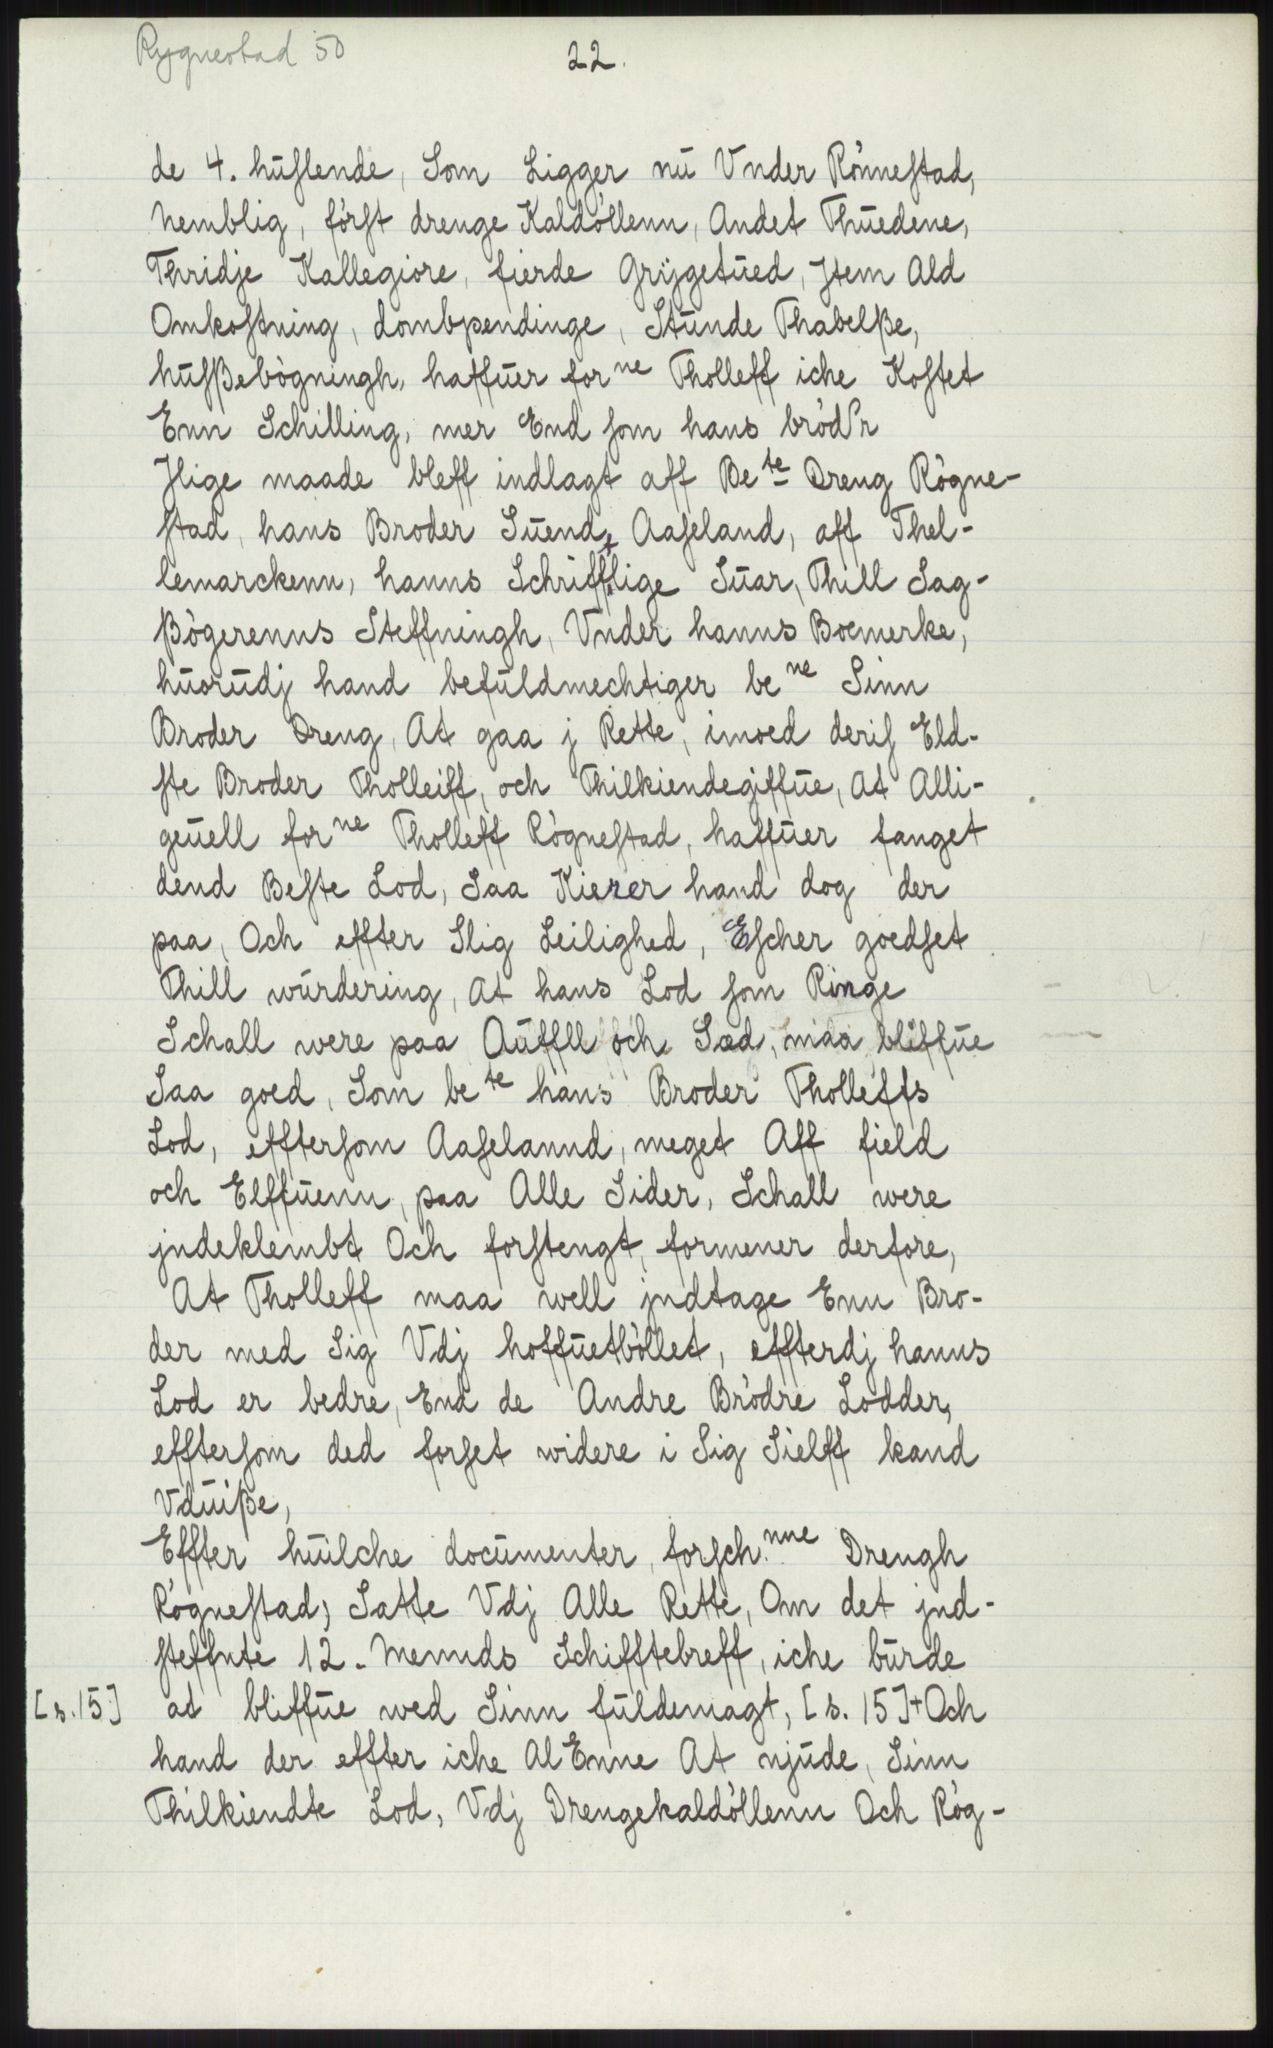 Rygnestad 50
22.
de 4. huslende, Som Ligger nü Vnder Rönnestad,
Nemblig, först drenge Kaldöllenn, Andet Thüedene,
Thridje Kallegiore, fierde Grijgetüed, Jtem Ald
Omkostning, dombpendinge, Stünde Thabelße,
hüsßebögningh, haffüer for ne Tholleff iche Kostet
Enn Schilling, mer End som hans brödr
Jlige maade bleff indlagt aff Be te Dreng Rögne-
stad, hans Broder Süend, Aaseland, aff Thel-
lemarckenn, hanns Schrifftlige Süar, Thill Sag-
ßögerenns Steffningh, Vnder hanns Boemerke,
hüorüdj hand befüldmechtiger be ne Sinn
Broder Dreng, At gaa j Rette, imoed deris Eld-
ste Broder Tholleiff, och Thilkiendegiffüe, At Alli-
geüell for ne Tholleff Rögnestad, haffüer fanget
dend Beste Lod, Saa Kierer hand dog der
paa, Och effter Slig Leilighed, Escher goedset
Thill würdering, At hans Lod som Ringe
Schall were paa Aüffll och Sæd, maa bliffüe
Saa goed, Som be te hans Broder Tholleffs
Lod, efftersom Aaselannd, meget Aff field
och Elffüenn, paa Alle Sider, Schall were
jndeklembt Och forstengt, formener derfore,
At Tholleff maa well jndtage Enn Bro-
der med Sig Vdj hoffüetböllet, effterdj hanns
Lod er bedre, End de Andre Brödre Lodder,
efftersom ded forset widere i Sig Sielff kand
Vdüiße,
Effter hüilche documenter, forsch. nne Drengh
Rögnestad, Satte Vdj Alle Rette, Om det jnd-
steffnte 12. Mennds Schifftebreff, iche bürde
[s. 15] at bliffüe wed Sinn füldemagt, [s. 15]+Och
hand der effter iche Al Enne At njüde, Sinn
Thilkiendte Lod, Vdj Drengekaldöllenn Och Rög-